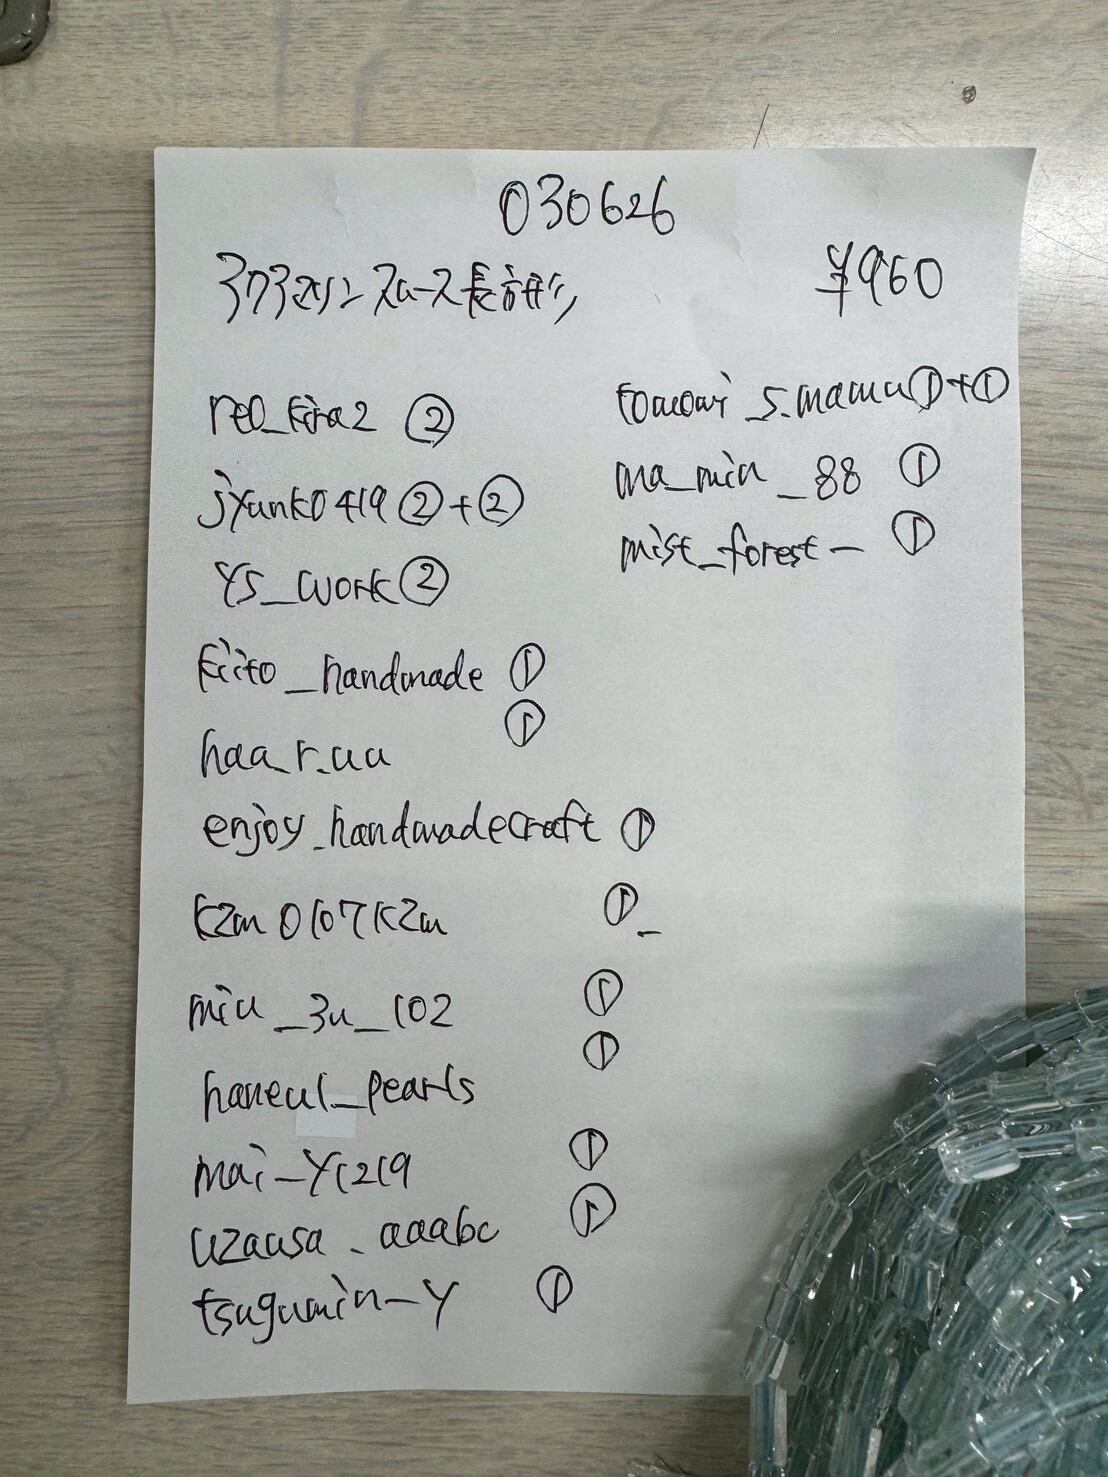 030626
スムース長方形 ¥960
reo_kira2 ②
jyunko419 ②+②
YS_work ②
kiito_handmade ①
haa_r.uu ①
enjoy_handmadecraft ①
kzm0107kzm ①_
miu_3u_102 ①
haneul_pearls ①
mai_y1219 ①
uzausa_aaabc ①
tsugumin_y ①
tomomi_s.mama ①+①
ma_min_88 ①
mist_forest_ ①